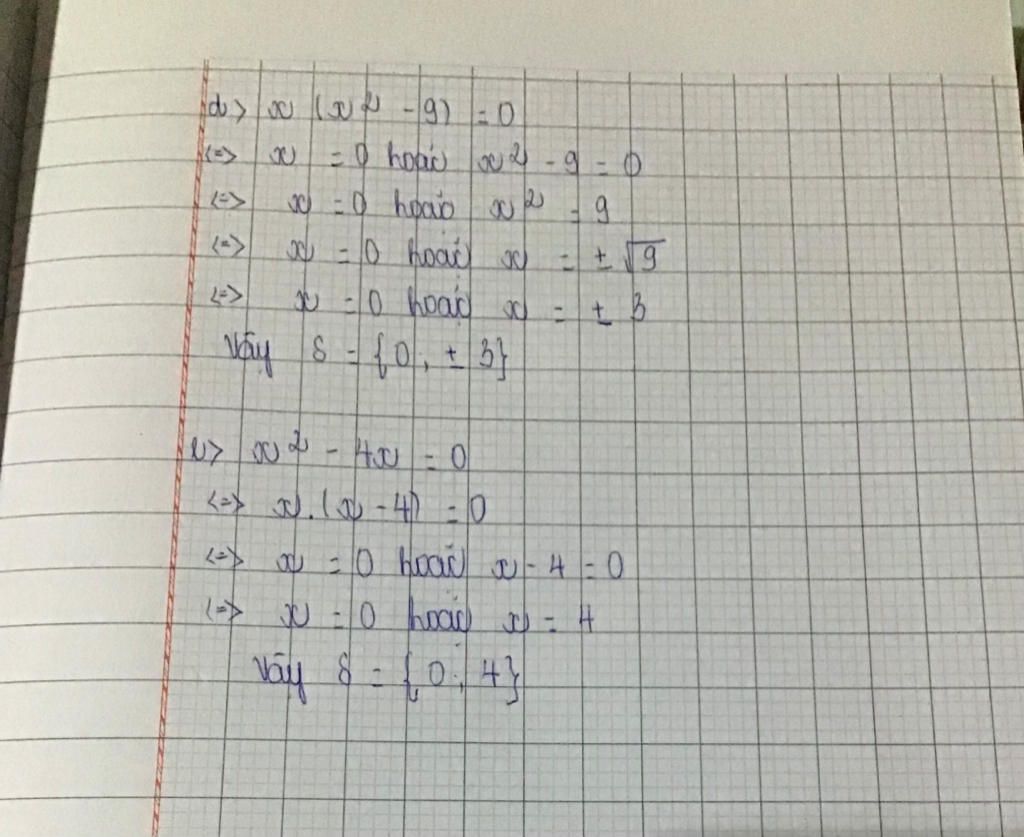 d> x (x² - 9) = 0
<=> x = 0 hoặc x² - 9 = 0
<=> x = 0 hoặc x² = 9
<=> x = 0 hoặc x = ± √9
<=> x = 0 hoặc x = ± 3
Vậy S = {0, ± 3}
e> x² - 4x = 0
<=> x.(x - 4) = 0
<=> x = 0 hoặc x - 4 = 0
<=> x = 0 hoặc x = 4
Vậy S = {0; 4}